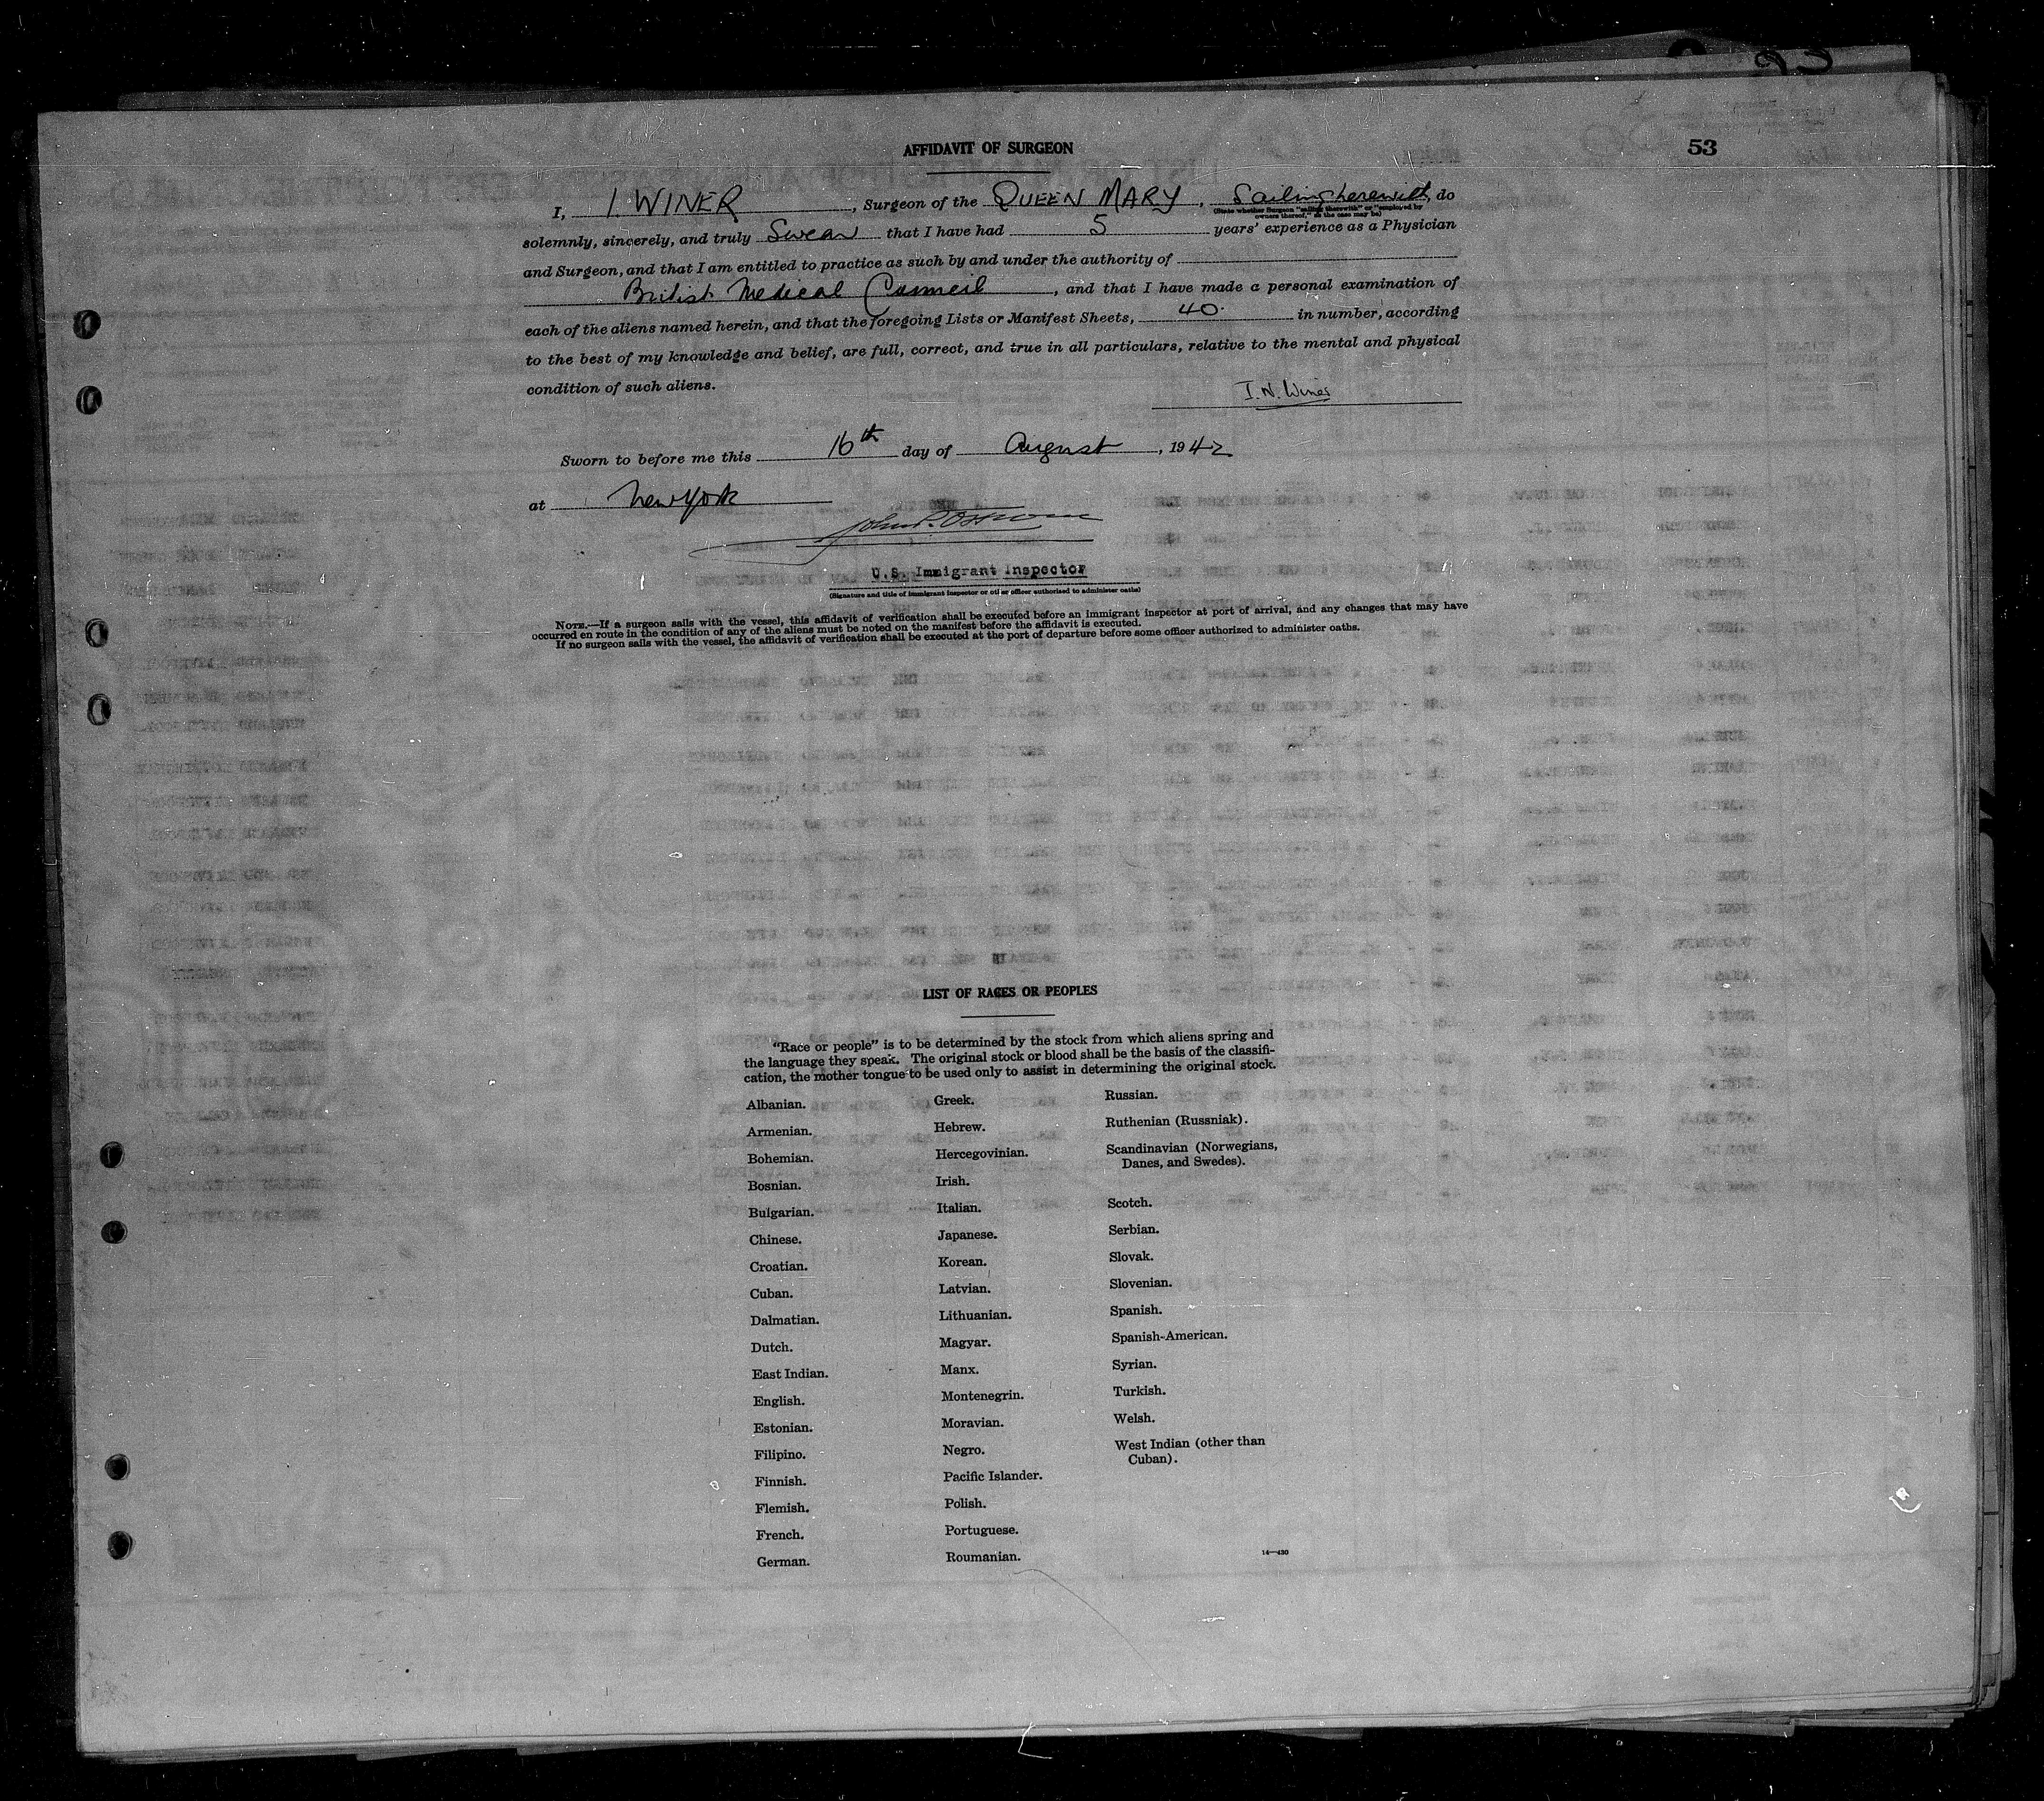 AFFIDAVIT OF SURGEON
53
I, I. WINER, Surgeon of the QUEEN MARY, Sailing therewith, do
(State whether Surgeon "sailing therewith" or "employed by
owners thereof," as the case may be)
solemnly, sincerely, and truly Swear that I have had 5 years' experience as a Physician
and Surgeon, and that I am entitled to practice as such by and under the authority of
British Medical Council, and that I have made a personal examination of
each of the aliens named herein, and that the foregoing Lists or Manifest Sheets, 40. in number, according
to the best of my knowledge and belief, are full, correct, and true in all particulars, relative to the mental and physical
condition of such aliens.
I. N. Winer
Sworn to before me this 16th day of August, 1942
at New York
U.S. Immigrant Inspector
(Signature and title of immigrant inspector or other officer authorized to administer oaths)
NOTE.—If a surgeon sails with the vessel, this affidavit of verification shall be executed before an immigrant inspector at port of arrival, and any changes that may have
occurred en route in the condition of any of the aliens must be noted on the manifest before the affidavit is executed.
If no surgeon sails with the vessel, the affidavit of verification shall be executed at the port of departure before some officer authorized to administer oaths.
LIST OF RACES OR PEOPLES
"Race or people" is to be determined by the stock from which aliens spring and
the language they speak. The original stock or blood shall be the basis of the classifi-
cation, the mother tongue to be used only to assist in determining the original stock.
Albanian.
Armenian.
Bohemian.
Bosnian.
Bulgarian.
Chinese.
Croatian.
Cuban.
Dalmatian.
Dutch.
East Indian.
English.
Estonian.
Filipino.
Finnish.
Flemish.
French.
German.
Greek.
Hebrew.
Hercegovinian.
Irish.
Italian.
Japanese.
Korean.
Latvian.
Lithuanian.
Magyar.
Manx.
Montenegrin.
Moravian.
Negro.
Pacific Islander.
Polish.
Portuguese.
Roumanian.
Russian.
Ruthenian (Russniak).
Scandinavian (Norwegians,
Danes, and Swedes).
Scotch.
Serbian.
Slovak.
Slovenian.
Spanish.
Spanish-American.
Syrian.
Turkish.
Welsh.
West Indian (other than
Cuban).
14—430